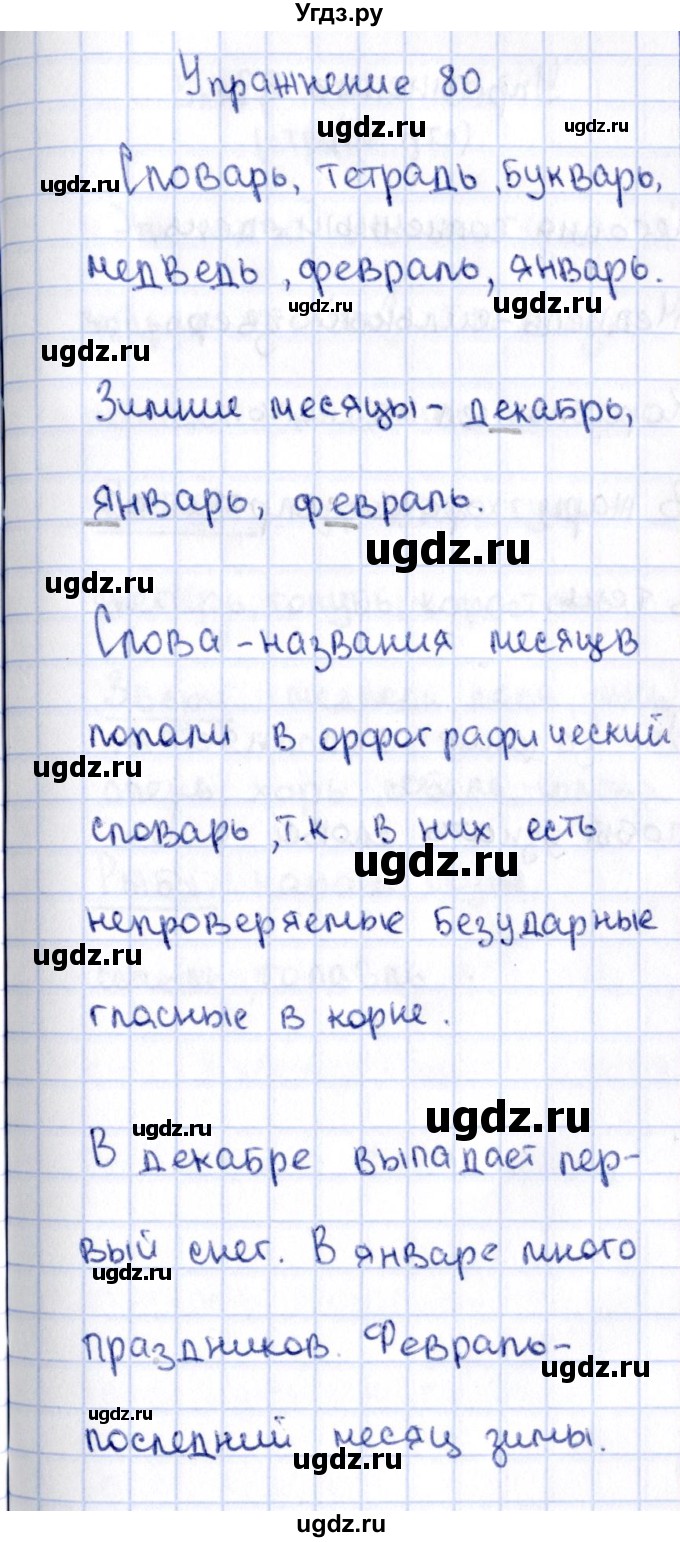 Угдз.ру
Упражнение 80
ugdz.ru
ugdz.ru
ugdz.ru
Словарь, тетрадь, букварь,
медведь, февраль, январь.
ugdz.ru
ugdz.ru
ugdz.ru
Зимние месяцы - декабрь,
январь, февраль.
ugdz.ru
ugdz.ru
Слова - названия месяцев
попали в орфографический
ugdz.ru
словарь, т.к в них есть
ugdz.ru
непроверяемые безударные
ugdz.ru
гласные в корне.
ugdz.ru
ugdz.ru
В декабре выпадает пер-
вый снег. В январе много
ugdz.ru
праздников. Февраль-
ugdz.ru
ugdz.ru
последний месяц зимы.
ugdz.ru
ugdz.ru